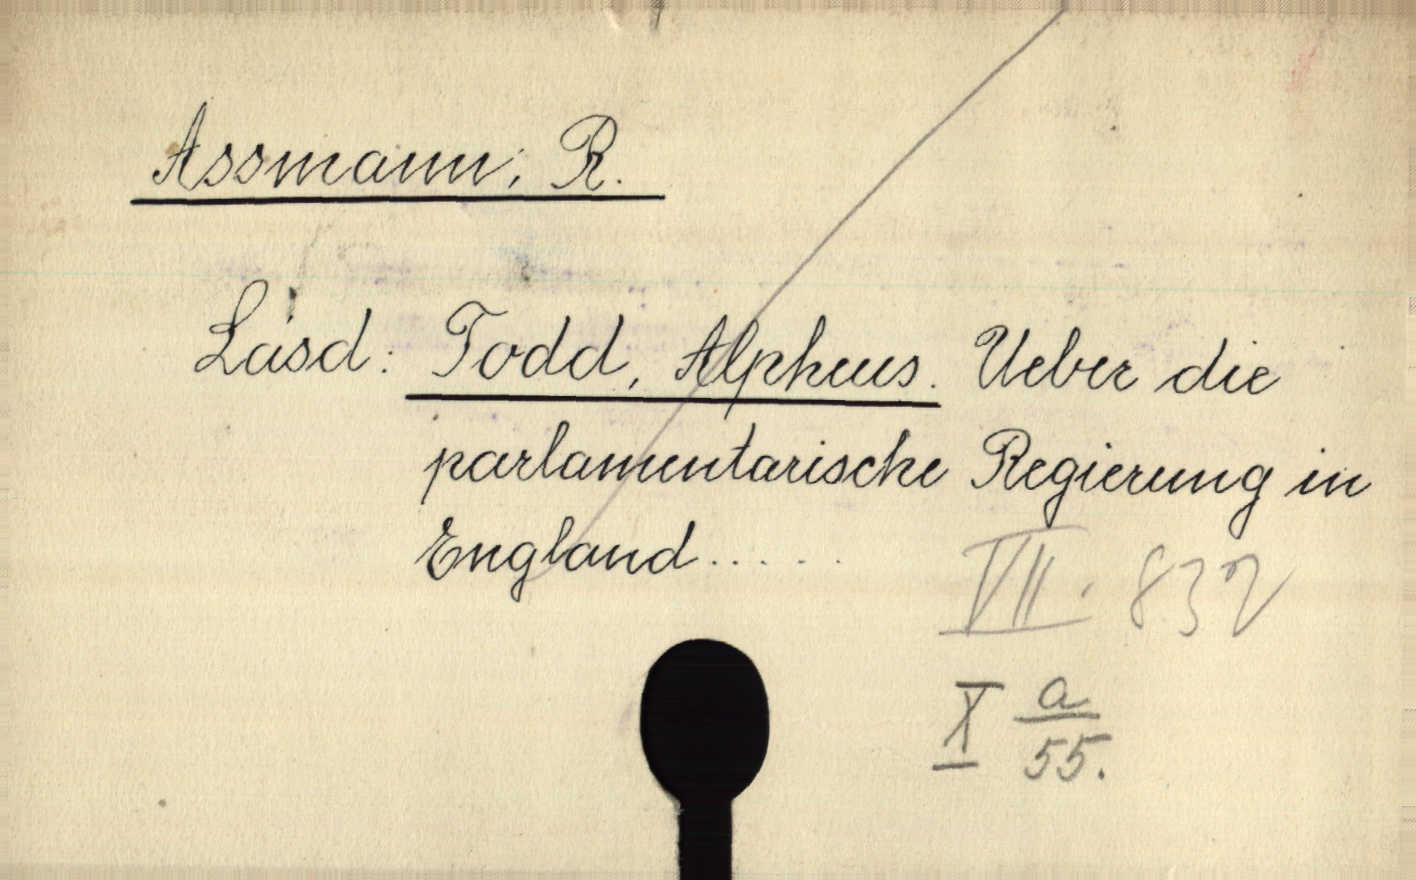 Assmann, R.
Lásd: Todd, Alpheus. Ueber die
parlamentarische Regierung in
England.....
VII. 832
X a/55.